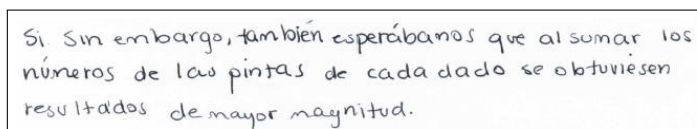 Si sin embargo, también esperábanos que al sumar los
números de las pintas de cada dado se obtuviesen
resultados de mayor magnitud.